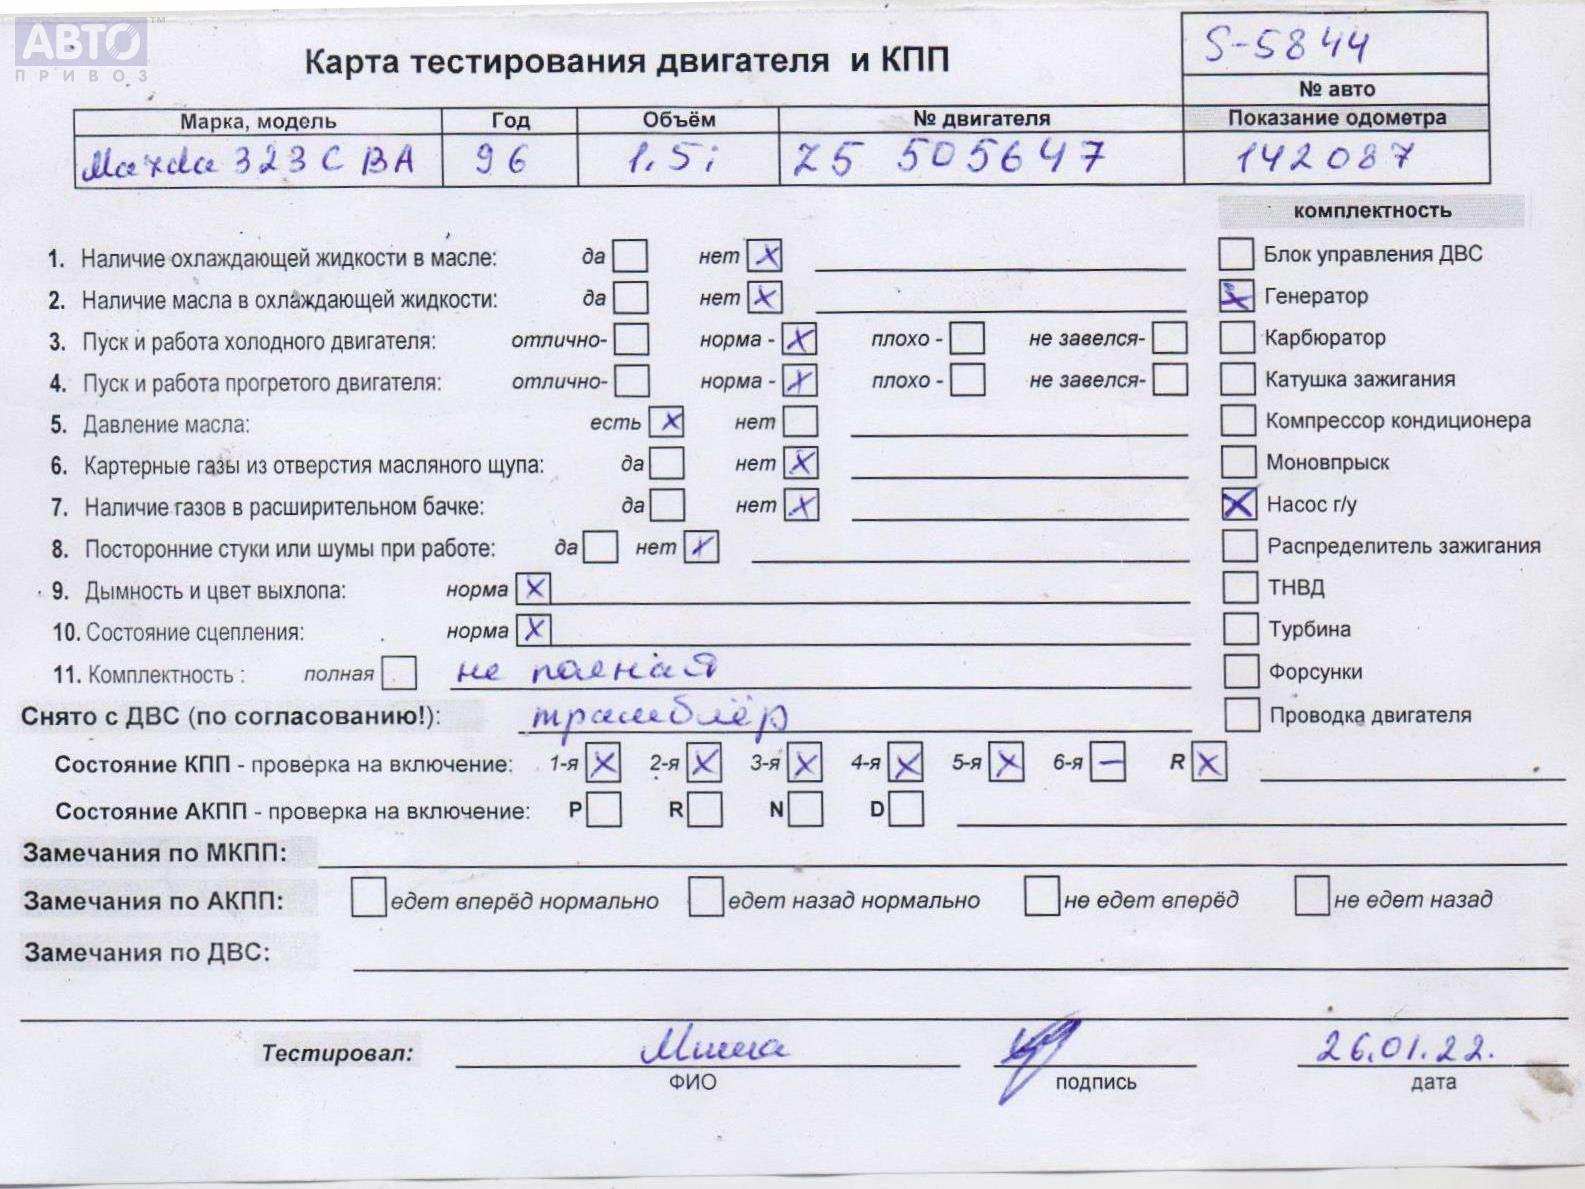 АВТО ™
ПРИВОЗ
Карта тестирования двигателя и КПП
S-5844
№ авто
Марка, модель Год Объём № двигателя Показание одометра
Mazda 323 C BA 96 1.5i Z5 505647 142087
комплектность
1. Наличие охлаждающей жидкости в масле: да нет X Блок управления ДВС
2. Наличие масла в охлаждающей жидкости: да нет X X Генератор
3. Пуск и работа холодного двигателя: отлично- норма - X плохо - не завелся- Карбюратор
4. Пуск и работа прогретого двигателя: отлично- норма - X плохо - не завелся- Катушка зажигания
5. Давление масла: есть X нет Компрессор кондиционера
6. Картерные газы из отверстия масляного щупа: да нет X Моновпрыск
7. Наличие газов в расширительном бачке: да нет X X Насос г/у
8. Посторонние стуки или шумы при работе: да нет X Распределитель зажигания
9. Дымность и цвет выхлопа: норма X ТНВД
10. Состояние сцепления: норма X Турбина
11. Комплектность : полная не полная Форсунки
Снято с ДВС (по согласованию!): трамблёр Проводка двигателя
Состояние КПП - проверка на включение: 1-я X 2-я X 3-я X 4-я X 5-я X 6-я — R X
Состояние АКПП - проверка на включение: P R N D
Замечания по МКПП:
Замечания по АКПП: едет вперёд нормально едет назад нормально не едет вперёд не едет назад
Замечания по ДВС:
Тестировал: Миша 26.01.22.
ФИО подпись дата